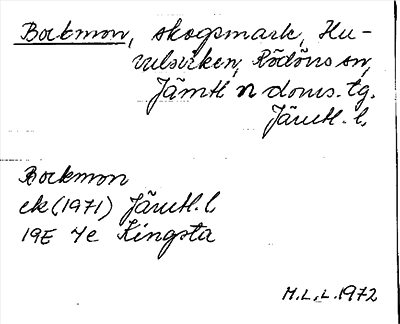 Bockmon, skogsmark, Hu-
vulsviken, Rödöns sn,
Jämtl n doms. tg.
Jämtl. l.
Bockmon
ek (1971) Jämtl. l
19E 7e Kingsta
M.L.L. 1972